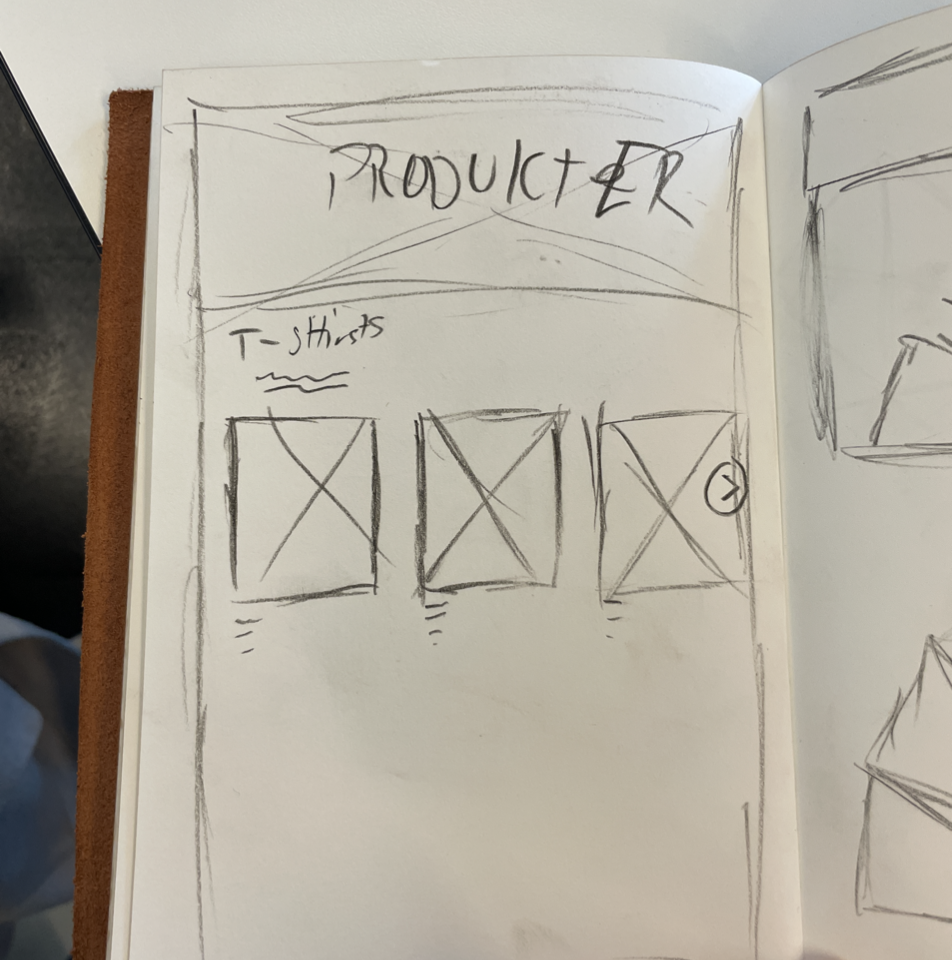 PRODUKTER
T-SHirts
>